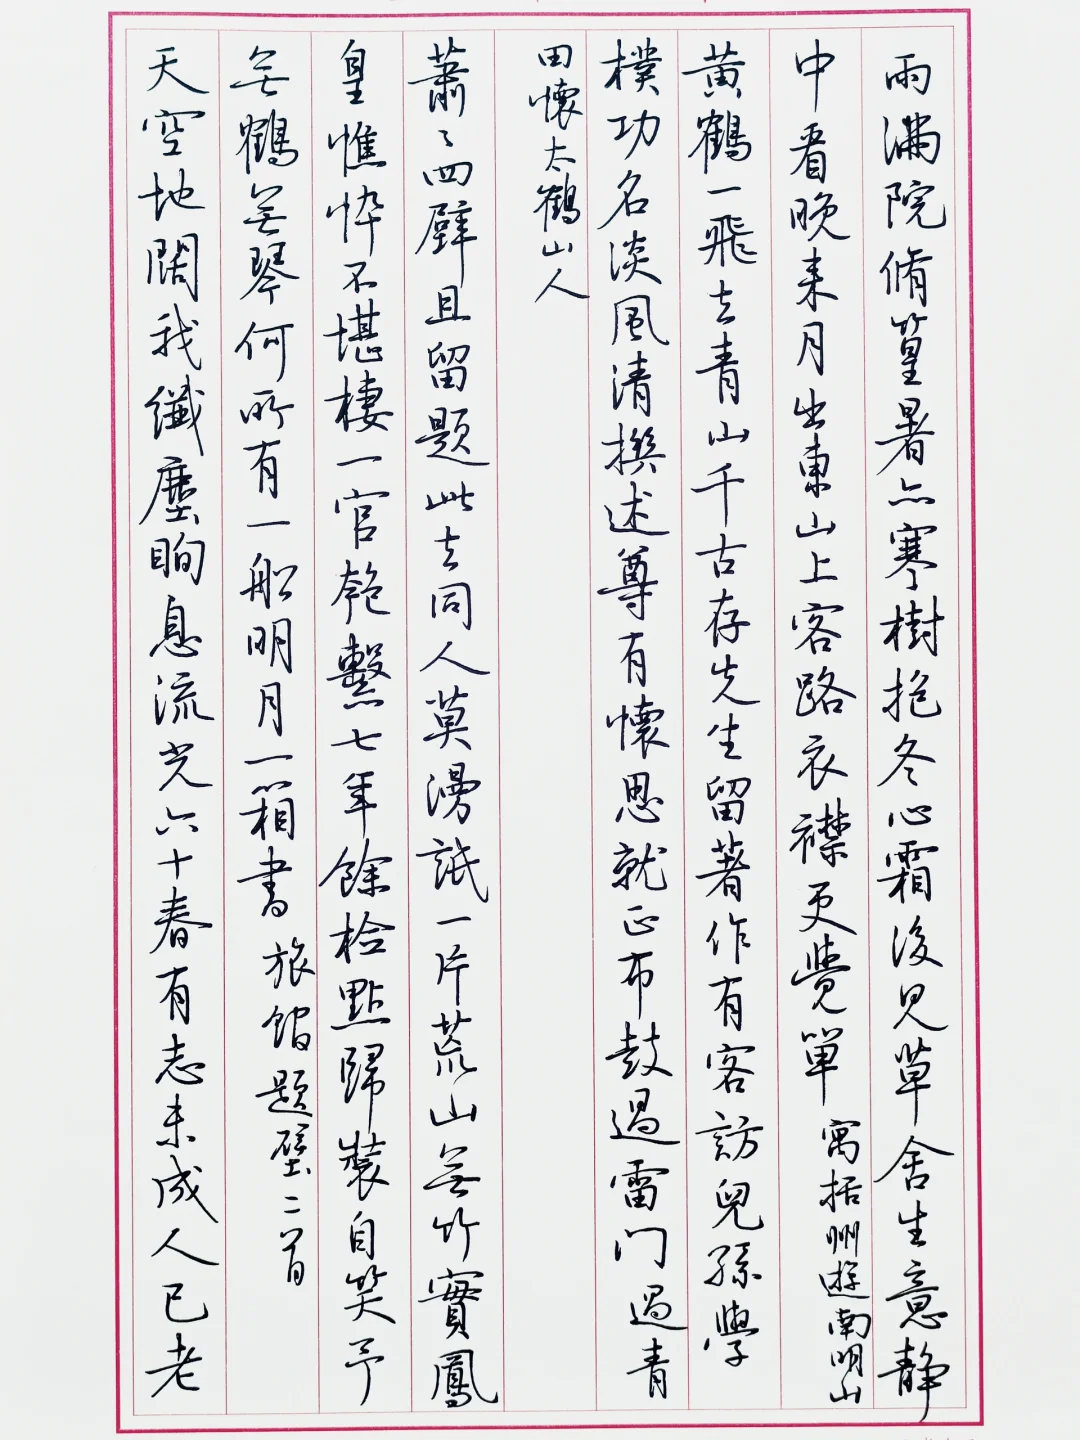 雨滿院脩篁暑亦寒樹抱冬心霜後見草舍生意静
中看晚来月出東山上客路衣襟更覺單 寓括州遊南明山
黄鶴一飛去青山千古存先生留著作有客訪兒孫學
樸功名淡風清撰述尊有懷思就正布鼓過雷门 過青
田懷太鶴山人
蕭々四壁且留題此去同人莫漫詆一片荒山無竹實鳳
皇憔悴不堪棲一官匏繫七年餘檢點歸裝自笑予
無鶴無琴何所有一船明月一箱書 旅館題壁二首
天空地闊我纖塵眴息流光六十春有志未成人已老